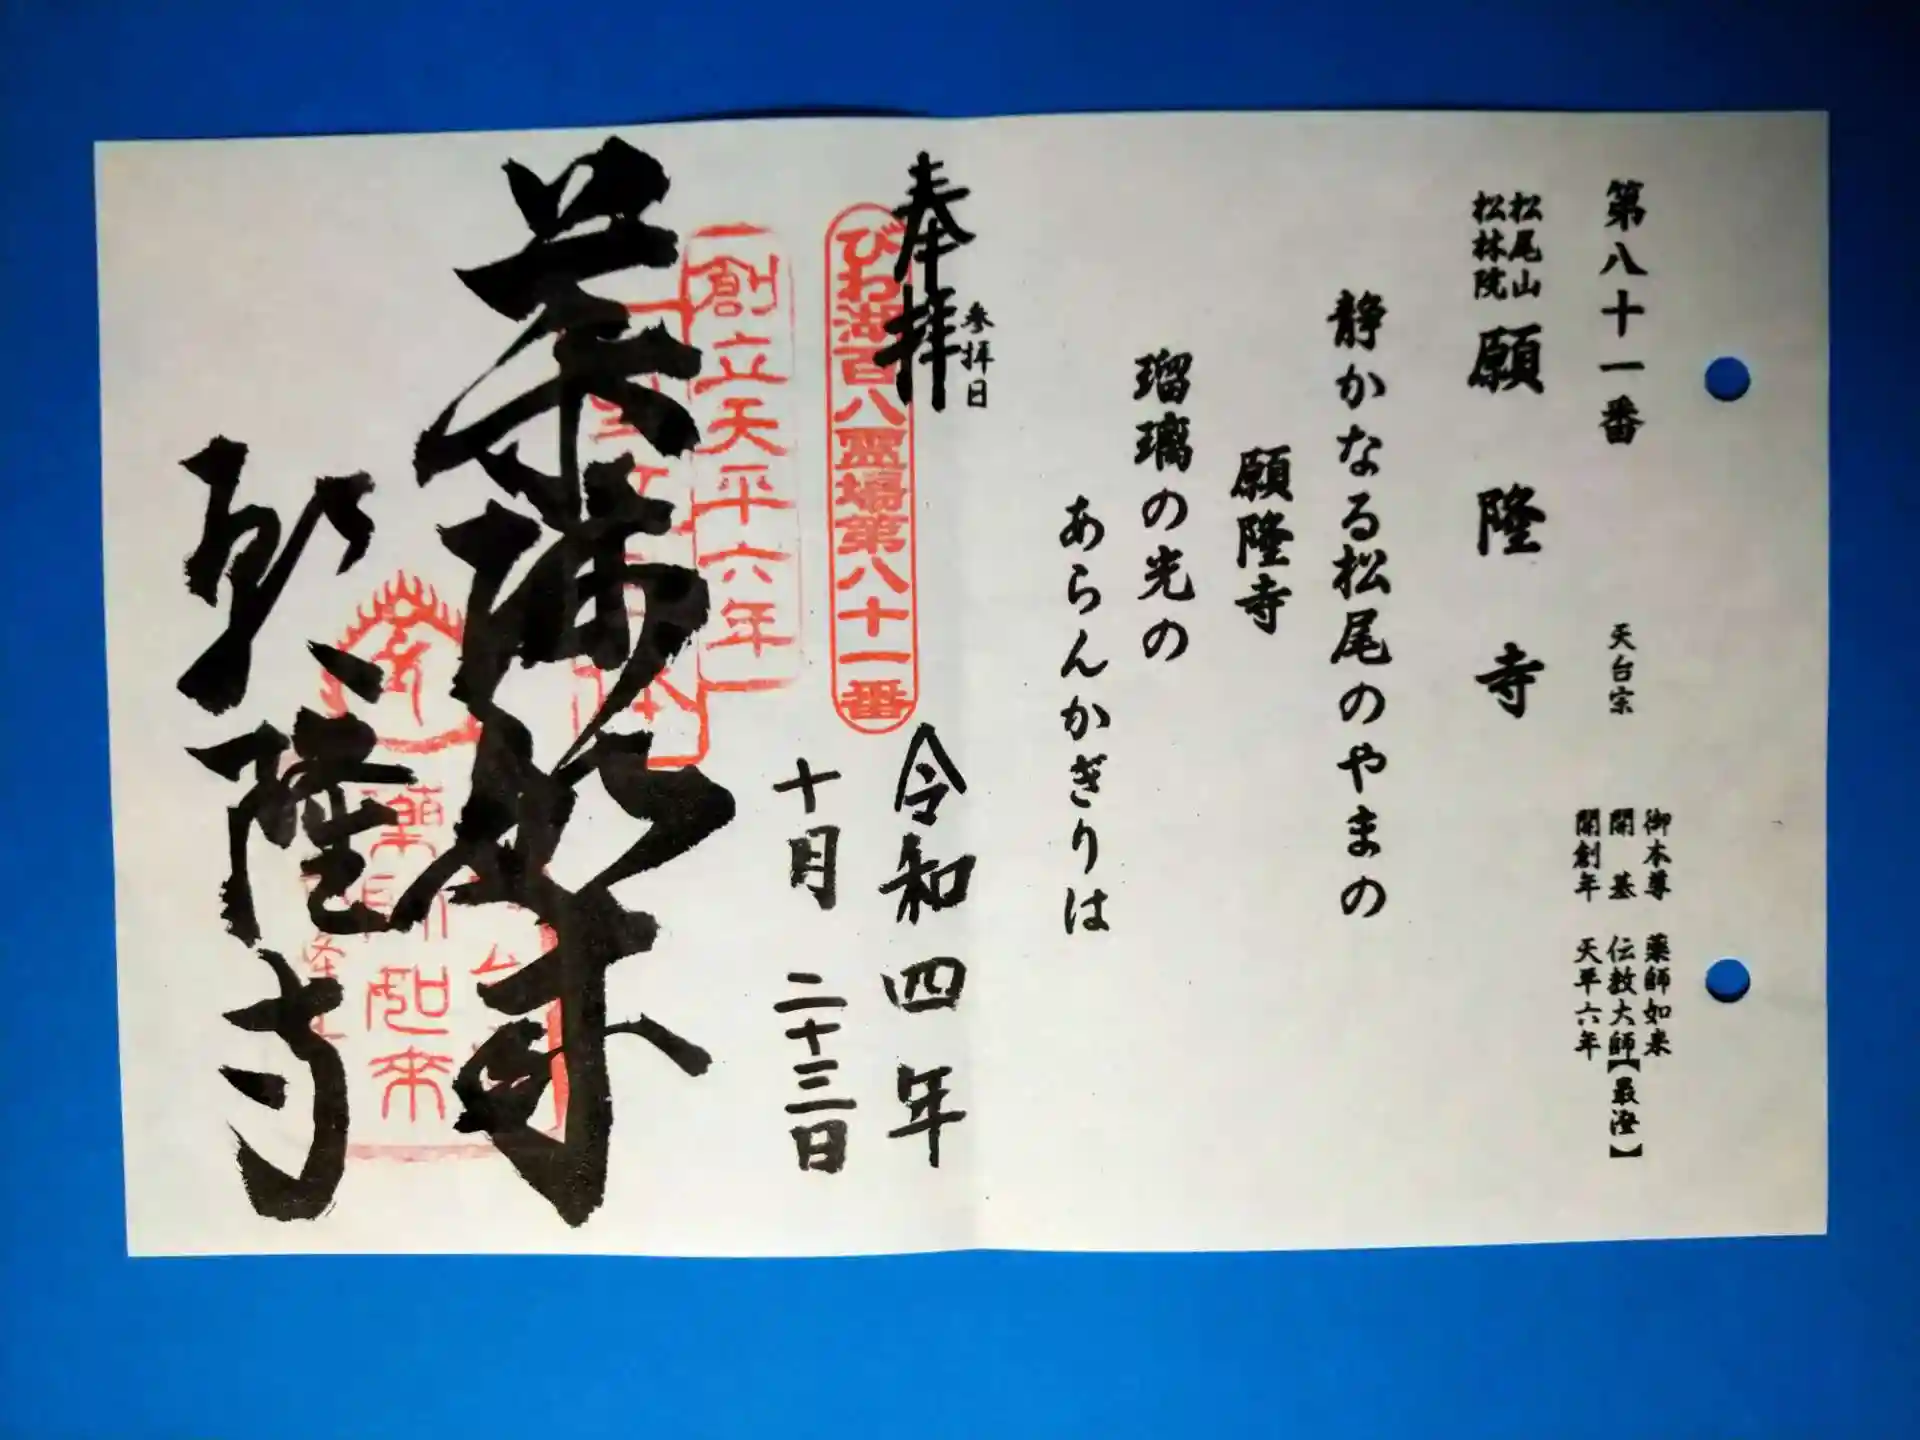 第八十一番 天台宗
御本尊 薬師如来
開基 伝教大師【最澄】
開創年 天平六年
松尾山
松林院
願隆寺
静かなる松尾のやまの
願隆寺
瑠璃の光の
あらんかぎりは
参拝日
奉拝
令和四年
びわ湖百八霊場第八十一番
十月 二十三日
創立天平六年
薬師如来
薬師如来
願隆寺